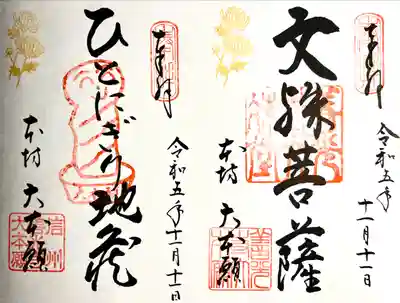 奉拝
令和五年
十一月十一日
文殊菩薩
本坊 大本願
奉拝
令和五年十一月十一日
ひとにぎり地蔵
本坊 大本願
信州
大本願